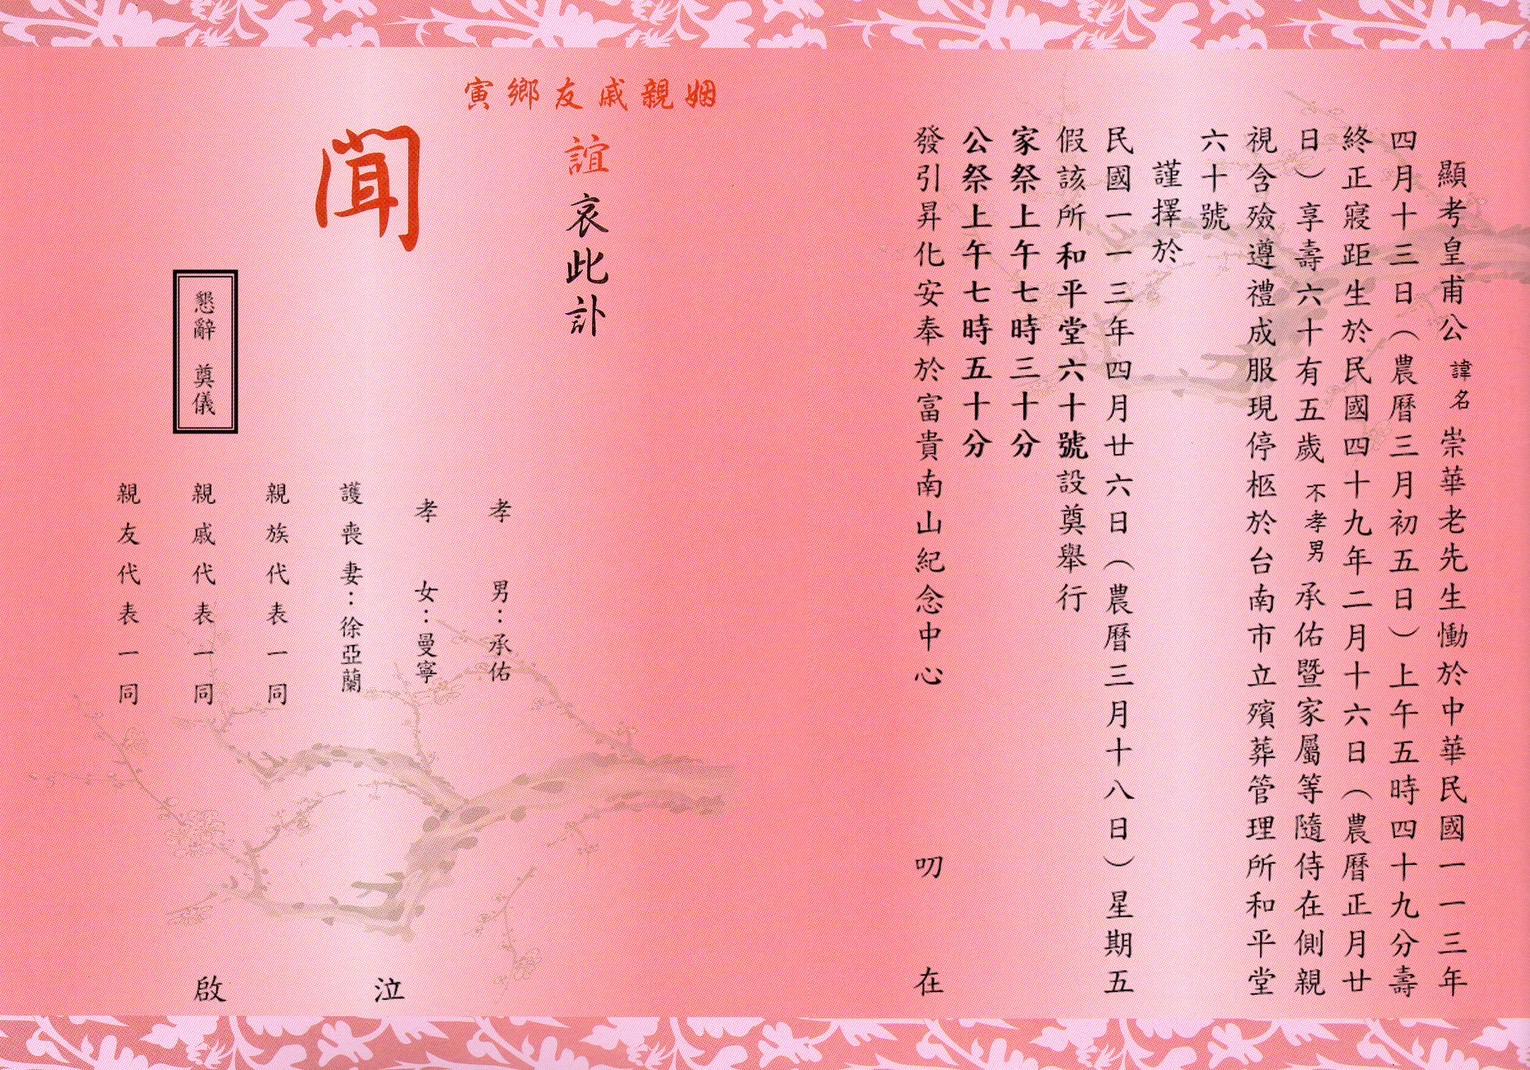 顯考皇甫公諱名崇華老先生慟於中華民國一一三年
四月十三日（農曆三月初五日）上午五時四十九分壽
終正寢距生於民國四十九年二月十六日（農曆正月廿
日）享壽六十有五歲不孝男承佑暨家屬等隨侍在側親
視含殮遵禮成服現停柩於台南市立殯葬管理所和平堂
六十號
謹擇於
民國一一三年四月廿六日（農曆三月十八日）星期五
假該所和平堂六十號設奠舉行
家祭上午七時三十分
公祭上午七時五十分
發引昇化安奉於富貴南山紀念中心 叨 在
姻親戚友鄉寅
誼哀此訃
聞
懇辭 奠儀
孝男：承佑
孝女：曼寧
護喪妻：徐亞蘭
親族代表一同
親戚代表一同
親友代表一同
泣
啟